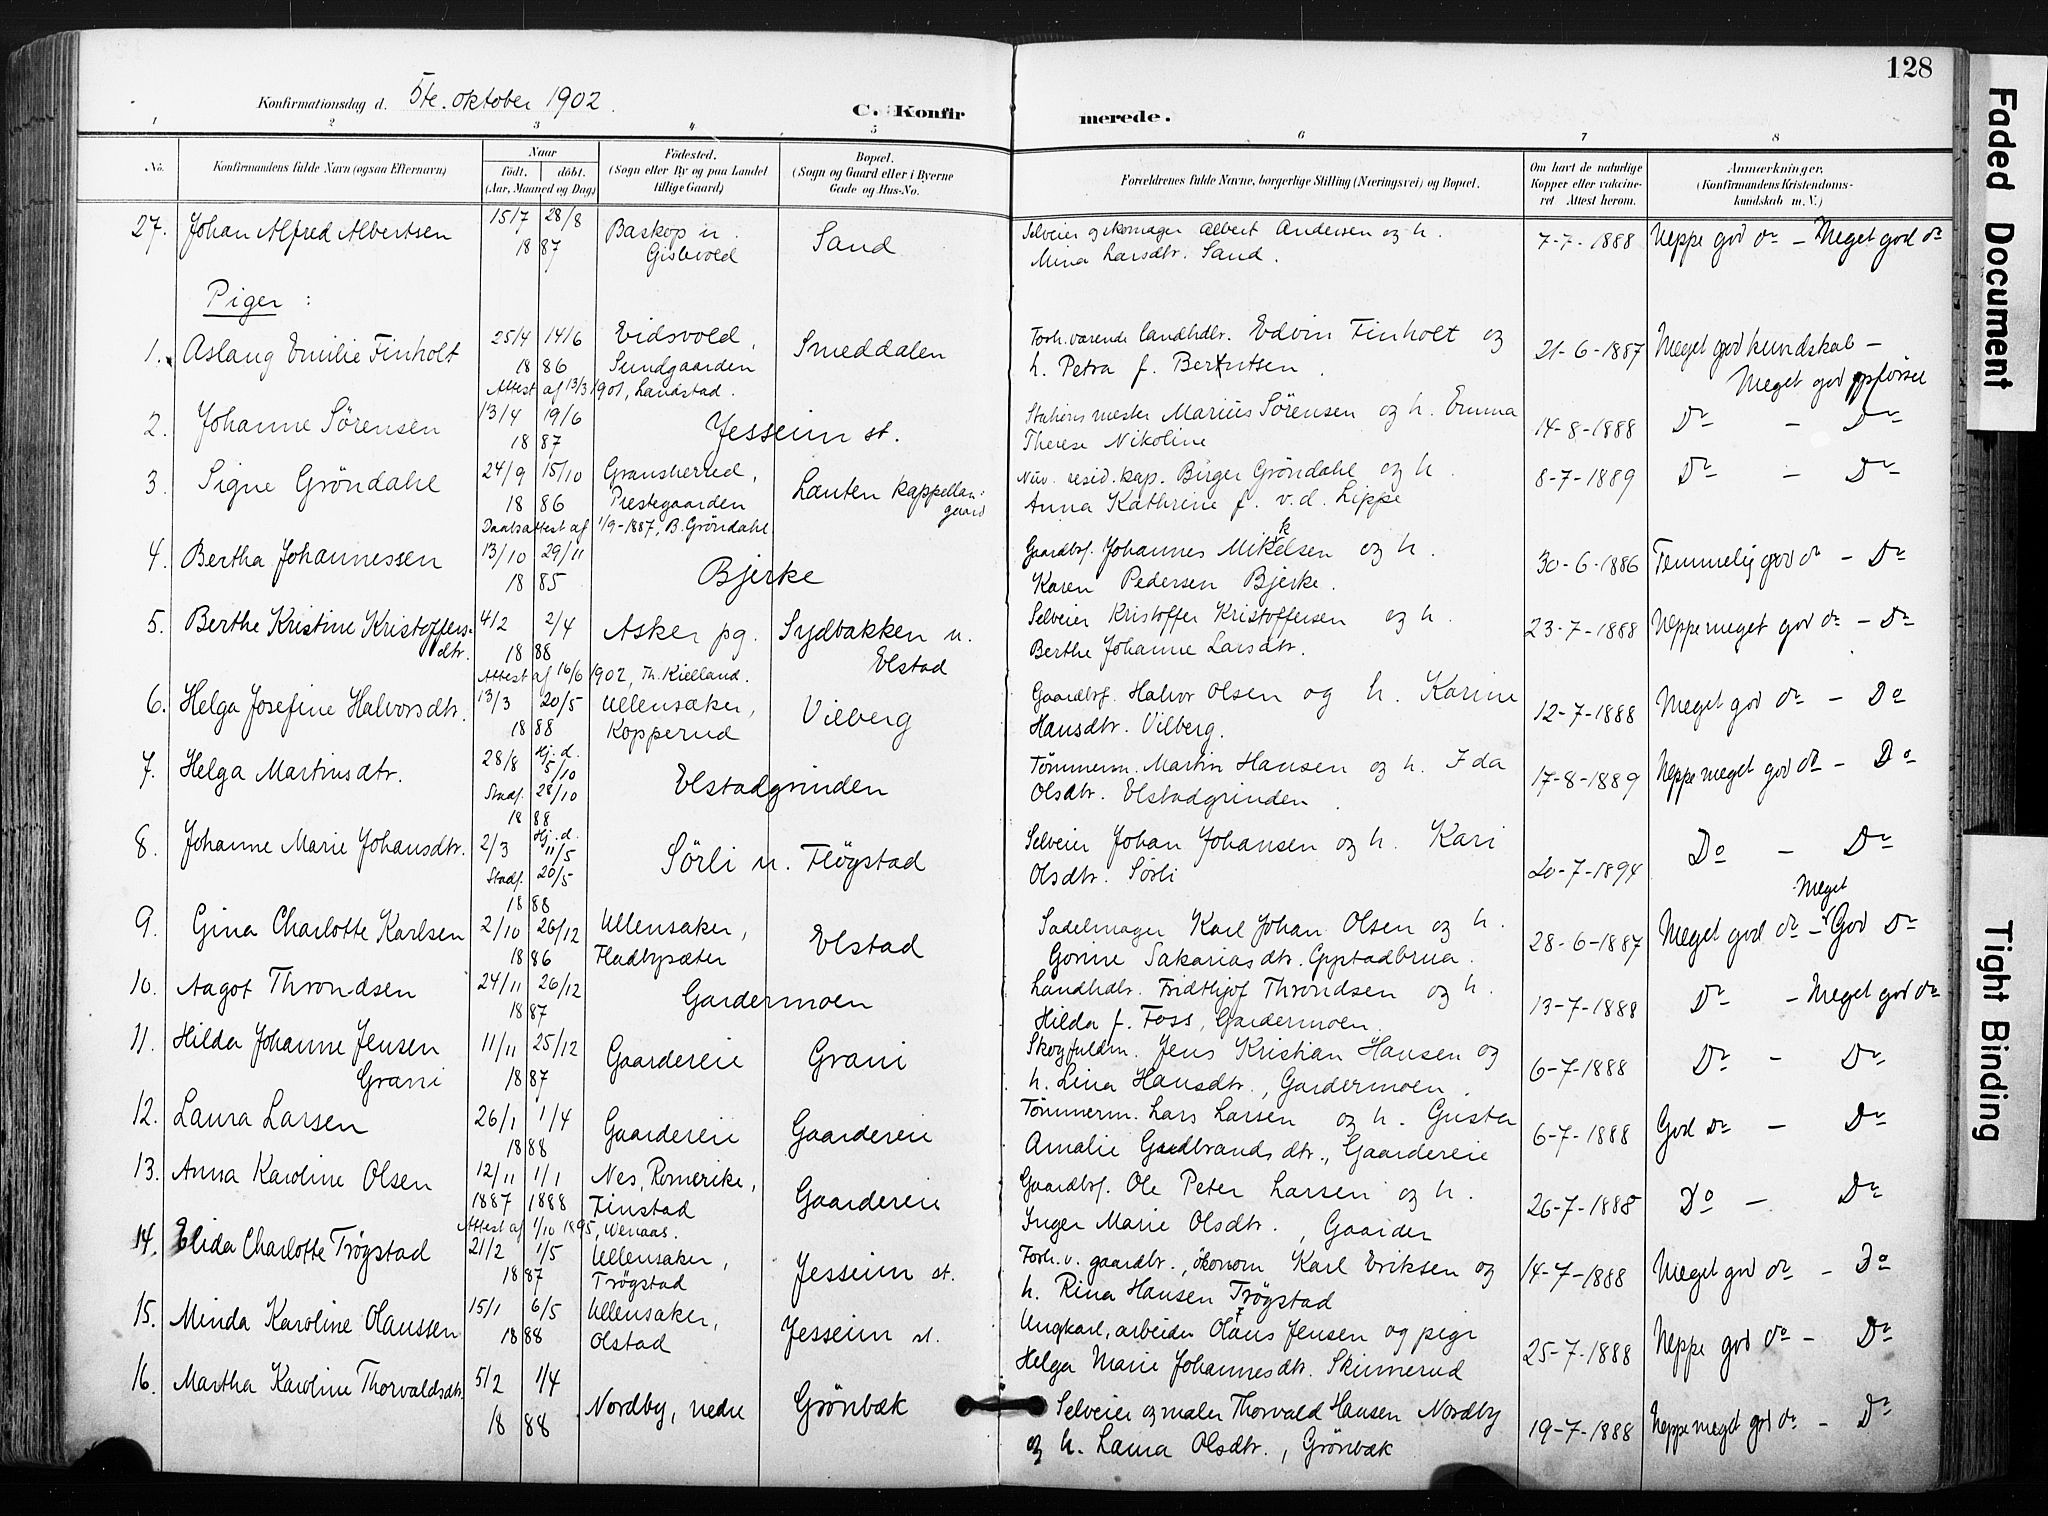 128
Faded Document
Tight Binding
Konfirmationsdag d. 5te. oktober 1902.
C. Konfirmerede.
1 2 3 4 5 6 7 8
No. Konfirmandens fulde Navn (ogsaa Efternavn) Naar født. døbt. (Aar, Maaned og Dag) Fødested. (Sogn eller By og paa Landet tillige Gaard) Bopæl. (Sogn og Gaard eller i Byerne Gade og Hus-No. Forældrenes fulde Navne, borgerlige Stilling (Næringsvei) og Bopæl. Om havt de naturlige Kopper eller vakcineret Attest herom. Anmærkninger. (Konfirmandens Kristendomskundskab m. V.)
27. Johan Alfred Albertsen 15/7 28/8 Baskop u. Sand Selveier og skomager Albert Andersen og h. 7-7-1888 Neppe god do - Meget god do
18 87 Gislevold Mina Larsdtr. Sand.
Piger:
1. Aslaug Emilie Finholt 25/4 14/6 Eidsvold, Smeddalen Forh.værende landhdlr. Edvin Finholt og 21-6-1887 Meget god kundskab -
18 86 Sundgaarden h. Petra f. Berntsen. Meget god opførsel
Attest af 13/3 1901, Landstad.
2. Johanne Sørensen 13/4 19/6 Jesseim st. Stationsmester Marius Sørensen og h. Emma 14-8-1888 Do - Do
18 87 Therese Nikoline
3. Signe Gröndahl 24/9 15/10 Gransherred, Løuten kappellangaard Nuv. resid. kap. Birger Gröndahl og h. 8-7-1889 Do - Do
18 86 Prestegaarden Anna Kathrine f. v. d. Lippe
Daabsattest af 1/9-1887, B. Gröndahl.
4. Bertha Johannessen 13/10 29/11 Bjerke Gaardbr. Johannes Mikkelsen og h. 30-6-1886 Temmelig god do - Do
18 85 Karen Pedersen Bjerke.
5. Berthe Kristine Kristoffersdtr. 4/2 2/4 Asker pg. Sydbakken u. Elstad Selveier Kristoffer Kristoffersen og h. 23-7-1888 Neppe meget god do - Do
18 88 Berthe Johanne Larsdtr.
Attest af 16/6 1902, Th. Kielland.
6. Helga Josefine Halvorsdtr. 13/3 20/5 Ullensaker, Vilberg Gaardbr. Halvor Olsen og h. Karine 12-7-1888 Meget god do - Do
18 88 Kopperud Hansdtr. Vilberg.
7. Helga Martinsdtr. 28/8 Hj. d. 5/10 Elstadgrinden Tømmerm. Martin Hansen og h. Ida 17-8-1889 Neppe meget god do - Do
Stadf. 28/10 Olsdtr. Elstadgrinden.
18 88
8. Johanne Marie Johansdtr. 2/3 Hj. d. 11/5 Sörli u. Flögstad Selveier Johan Johansen og h. Kari 20-7-1894 Do - Do
Stadf. 20/5 Olsdtr. Sörli
18 88
9. Gina Charlotte Karlsen 2/10 26/12 Ullensaker, Elstad Sadelmager Karl Johan Olsen og h. 28-6-1887 Meget god do - Meget God Do
18 86 Fladbysæter Gorine Sakariasdtr. Gystadbrua.
10. Aagot Throndsen 24/11 26/12 Gardermoen Landhdlr. Fridthjof Throndsen og h. 13-7-1888 Do - Meget god do
18 87 Hilda f. Foss, Gardermoen.
11. Hilda Johanne Jensen 11/11 25/12 Gaardereie Grani Skogfuldm. Jens Kristian Hansen og 6-7-1888 Do - Do
Grani 18 87 h. Lina Hansdtr., Gardermoen.
12. Laura Larsen 26/1 1/4 Gaardereie Gaardereie Tømmerm. Lars Larsen og h. Gusta 6-7-1888 God do - Do
18 88 Amalie Gudbrandsdtr., Gaardereie
13. Anna Karoline Olsen 12/11 1/1 Nes, Romerike, Gaardereie Gaardbr. Ole Peter Larsen og h. 26-7-1888 Do - Do
1887 1888 Finstad Inger Marie Olsdtr., Gaarder
Attest af 1/10 1895, Wenaas.
14. Elida Charlotte Trögstad 21/2 1/5 Ullensaker, Jesseim st. Forh. v. gaardbr., økonom Karl Eriksen og 14-7-1888 Meget god do - Do
18 87 Trögstad h. Rina Hansen Trögstad
15. Minda Karoline Olaussen 15/1 6/5 Ullensaker, Jesseim st. Ungkarl, arbeider Olaus Jensen og pige 25-7-1888 Neppe god do - Do
18 88 Olstad Helga Marie Johannesdtr. Skinnerud
16. Martha Karoline Thorvaldsdtr. 5/2 1/4 Nordby, nedre Grönbæk Selveier og maler Thorvald Hansen Nordby 19-7-1888 Neppe meget god do - Do
18 88 og h. Laura Olsdtr., Grönbæk